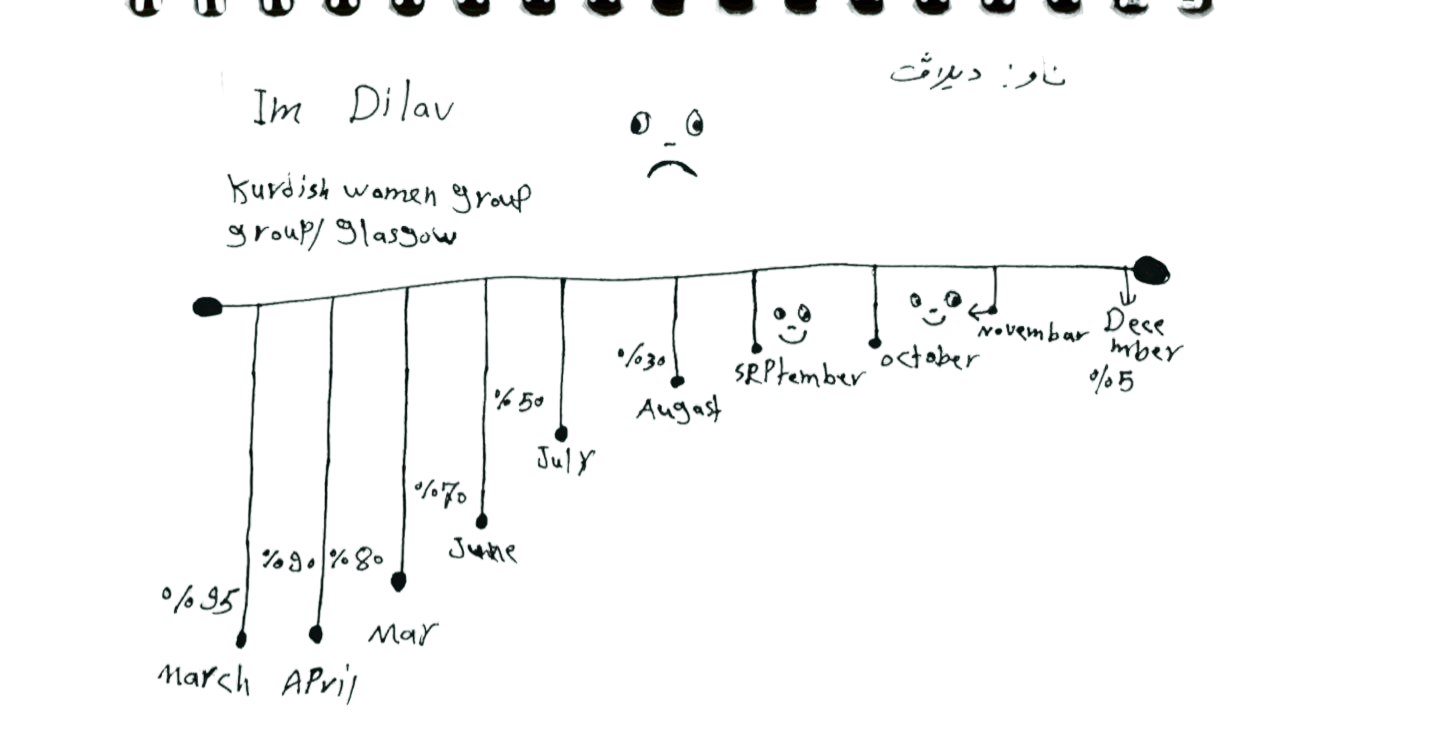 Im Dilav
ناو: دیلاڤ
Kurdish women group
group/ Glasgow
%95
March
%90
April
%80
May
%70
June
%50
July
%30
Augast
September
October
Novembar
Dece
mber
%5